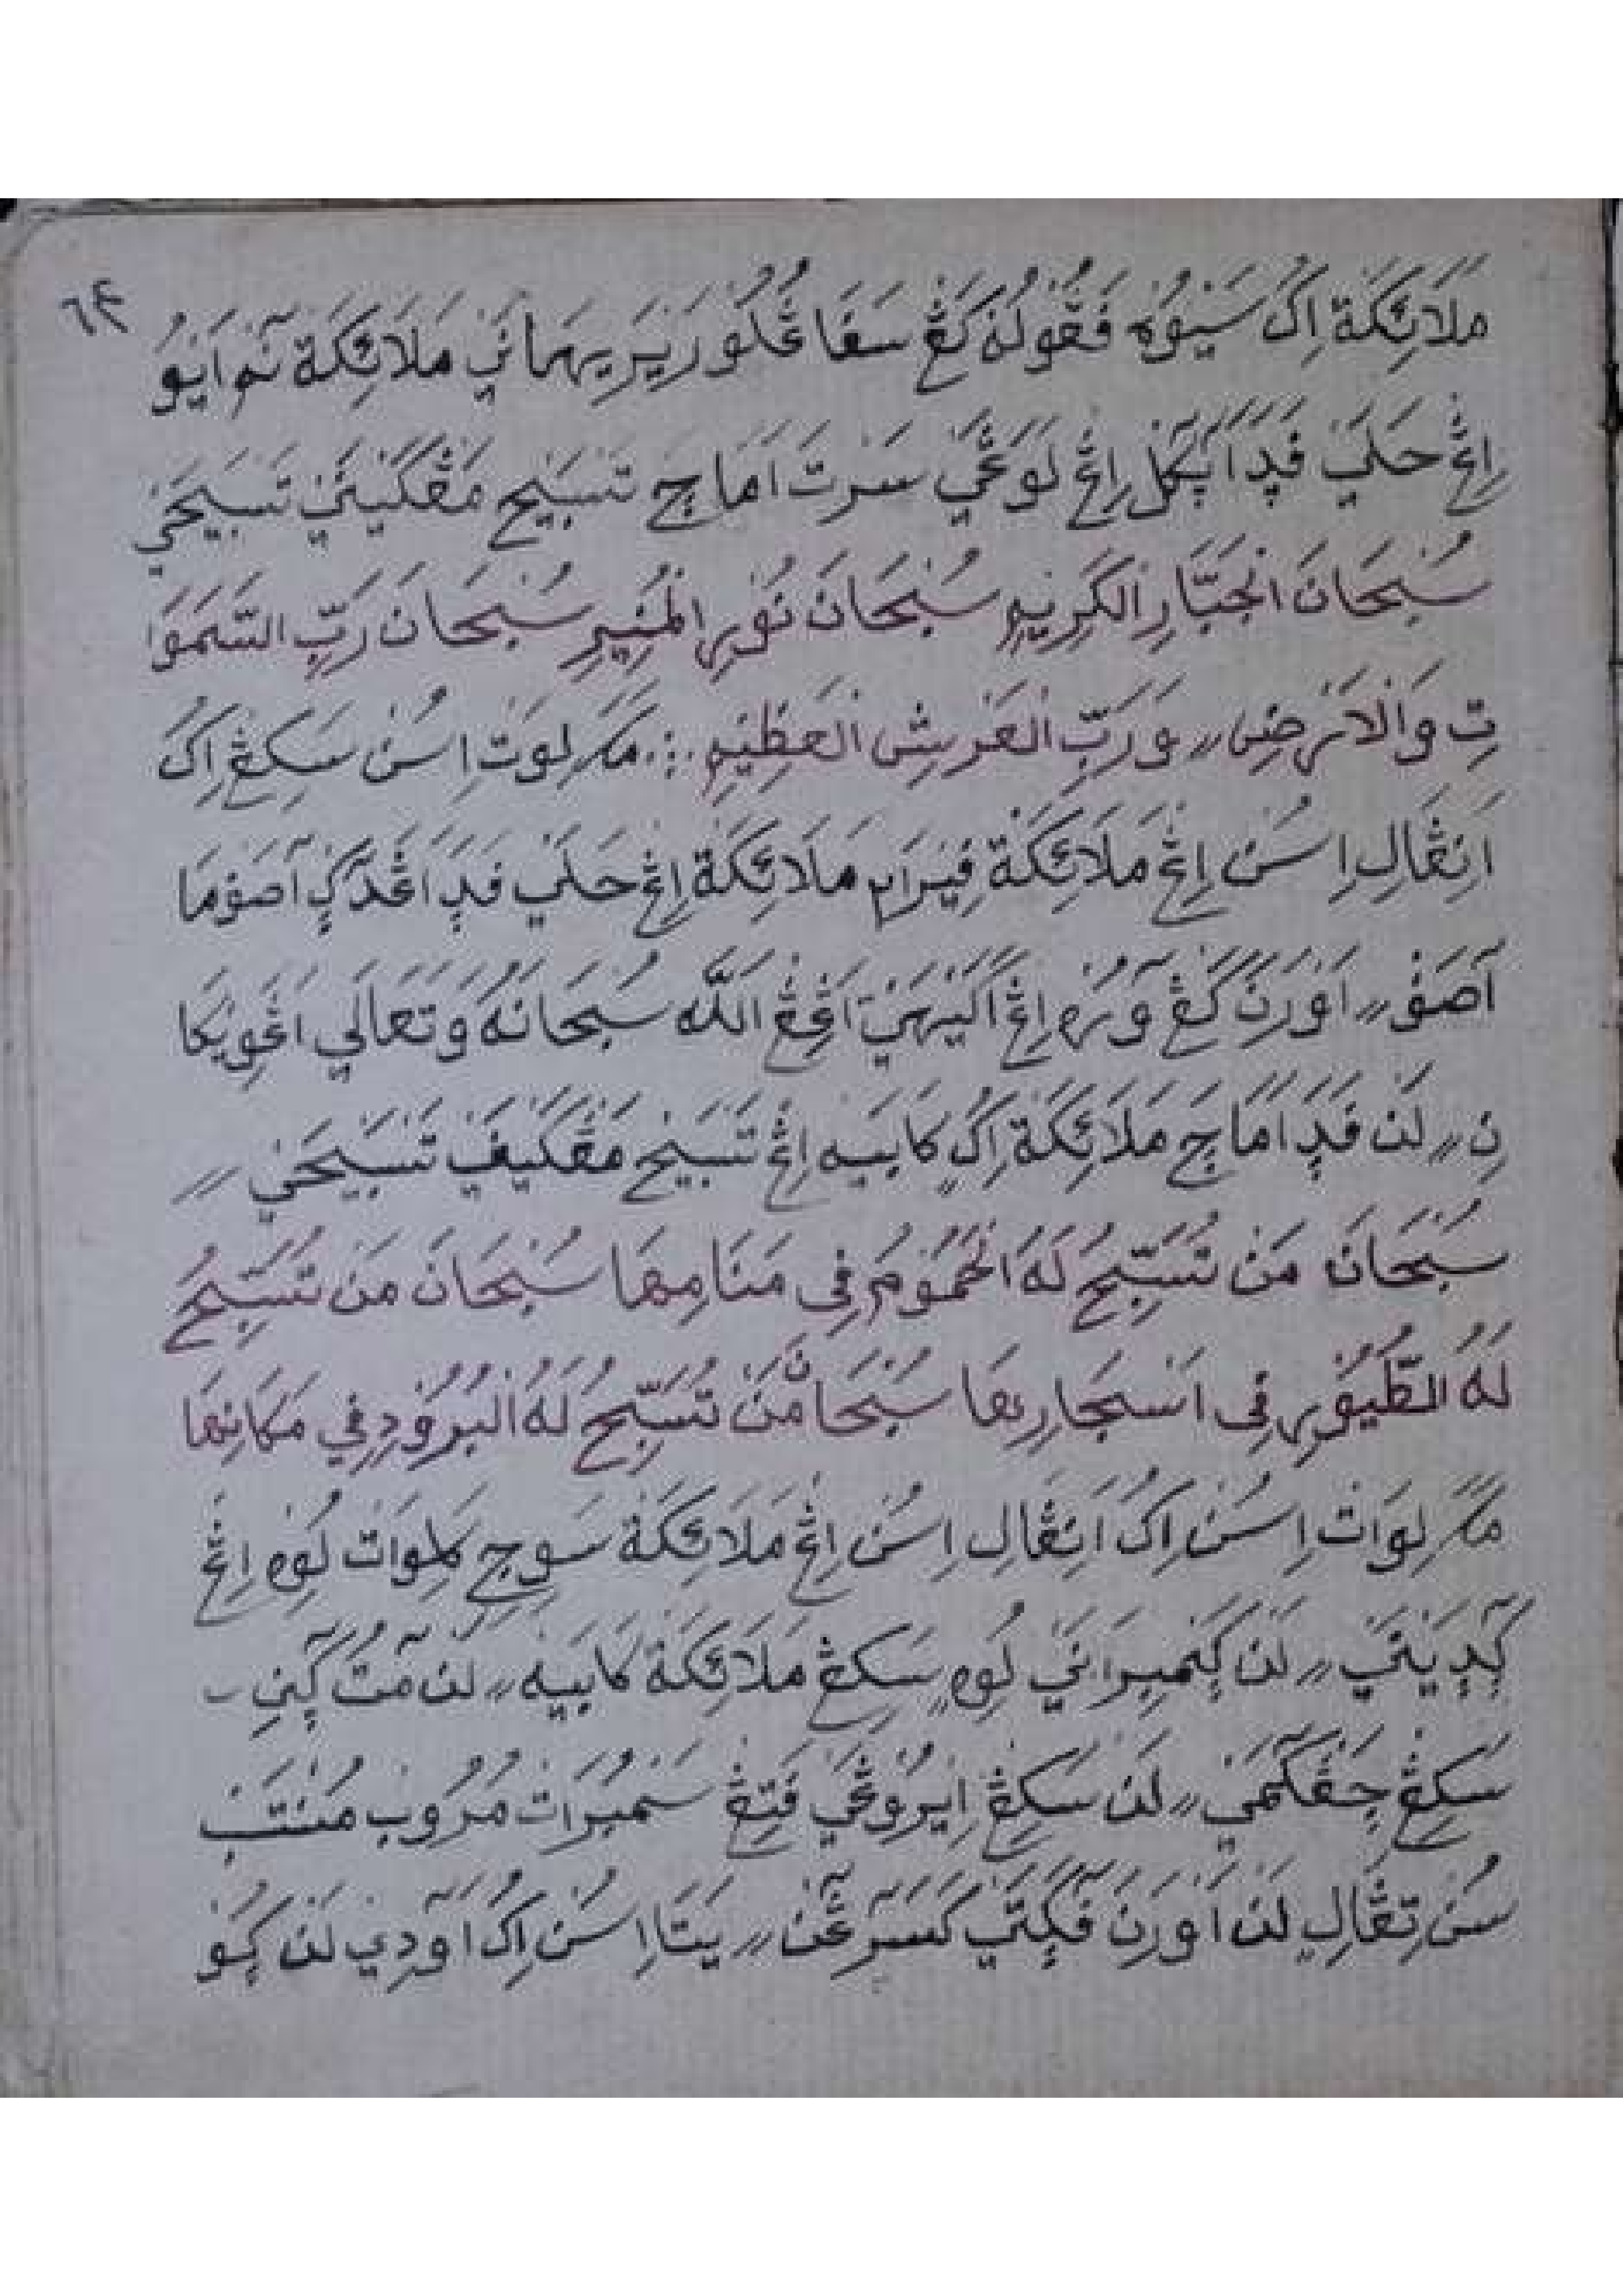 ٦٤
مَلَائِكَةْ اِكُ سَيْوُهْ فَڠُّوْلُهْ كَڠْ سَڠَا ڠُلُوْرْ نَيَرَيهَمانَيْ مَلَائِكَةْ نٓمْ اَيَوُ
اِڠْ حَلَيْ فَدَ اَبٓكَلْ اِڠْ لَوَڠَيْ سَرْتَ اَمَاجَ تَسْبَيحْ مَڠْكَيْنَيْ تَسْبَيحَيْ
سُبْحَانَ الْجَبَّارِ الْكَرِيْمِ سُبْحَانَ نُوْرِ الْمُنِيْرِ سُبْحَانَ رَبِّ السَّمَوَا
تِ وَالْاَرْضِ // وَرَبِّ الْعَرْشِ الْعَظِيْمِ ؞ مَكَ لِوَتْ اِسُنْ سَكِڠْ اِكُ
اَنِڠَّالِ اِسُنْ اِڠْ مَلَائِكَةْ فِيْرَامْ مَلَائِكَةْ اِڠْ حَلَيْ فَدَ اَڠَدٓكْ اٰصَفْ مَا
اٰصَفْ // اَوْرَنَ كَڠْ وٓرُهْ اِڠْ اَكَيْهَيْ اَڠِڠْ اللّٰه سُبْحَانَهُ وَتَعَالَي اَڠَوِيْكَا
نِ // لَنْ فَدَ اَمَاجَ مَلَائِكَةْ اِكُ كَابَيْه اِڠْ تَسْبَيحْ مَڠْكَيْنَيْ تَسْبَيحَيْ //
سُبْحَانَ مَنْ تُسَبِّحُ لَهُ الْحُمُوْمُ فِي مَنَامِهَا سُبْحَانَ مَنْ تُسَبِّحُ
لَهُ الطُّيُوْرِ فِى اَسْجَارِهَا سُبْحَانَ مَنْ تُسَبِّحُ لَهُ الْبُرُوْدِ فِي مَكَانِهَا
مَكَ لِوَاتْ اِسُنْ اِكُ اَنِڠَّالِ اِسُنْ اِڠْ مَلَائِكَةْ سَوِجِ كَلِوَاتْ لُوِهْ اِڠْ
كٓدَيْنَيْ // لَنْ كَڠْمِيرَانَيْ لُوِه سَكِڠْ مَلَائِكَةْ كَابَيْهْ // لَنْ مٓتُ كٓنِ
سَكِڠْ جَڠْكٓمَيْ // لَنْ سَكِڠْ اِيْرُوْڠَيْ فَتِڠْ سَمْبُرَاتْ مُرُوبْ مُنْتَبْ
سُنْ تِڠَّالِ لَنْ اَوْرَنَ فٓكٓتَيْ كَسَرٓڠٓنْ // يَتَا اِسُنْ اِكُ اَوٓدِيْ لَنْ كَيَوُ